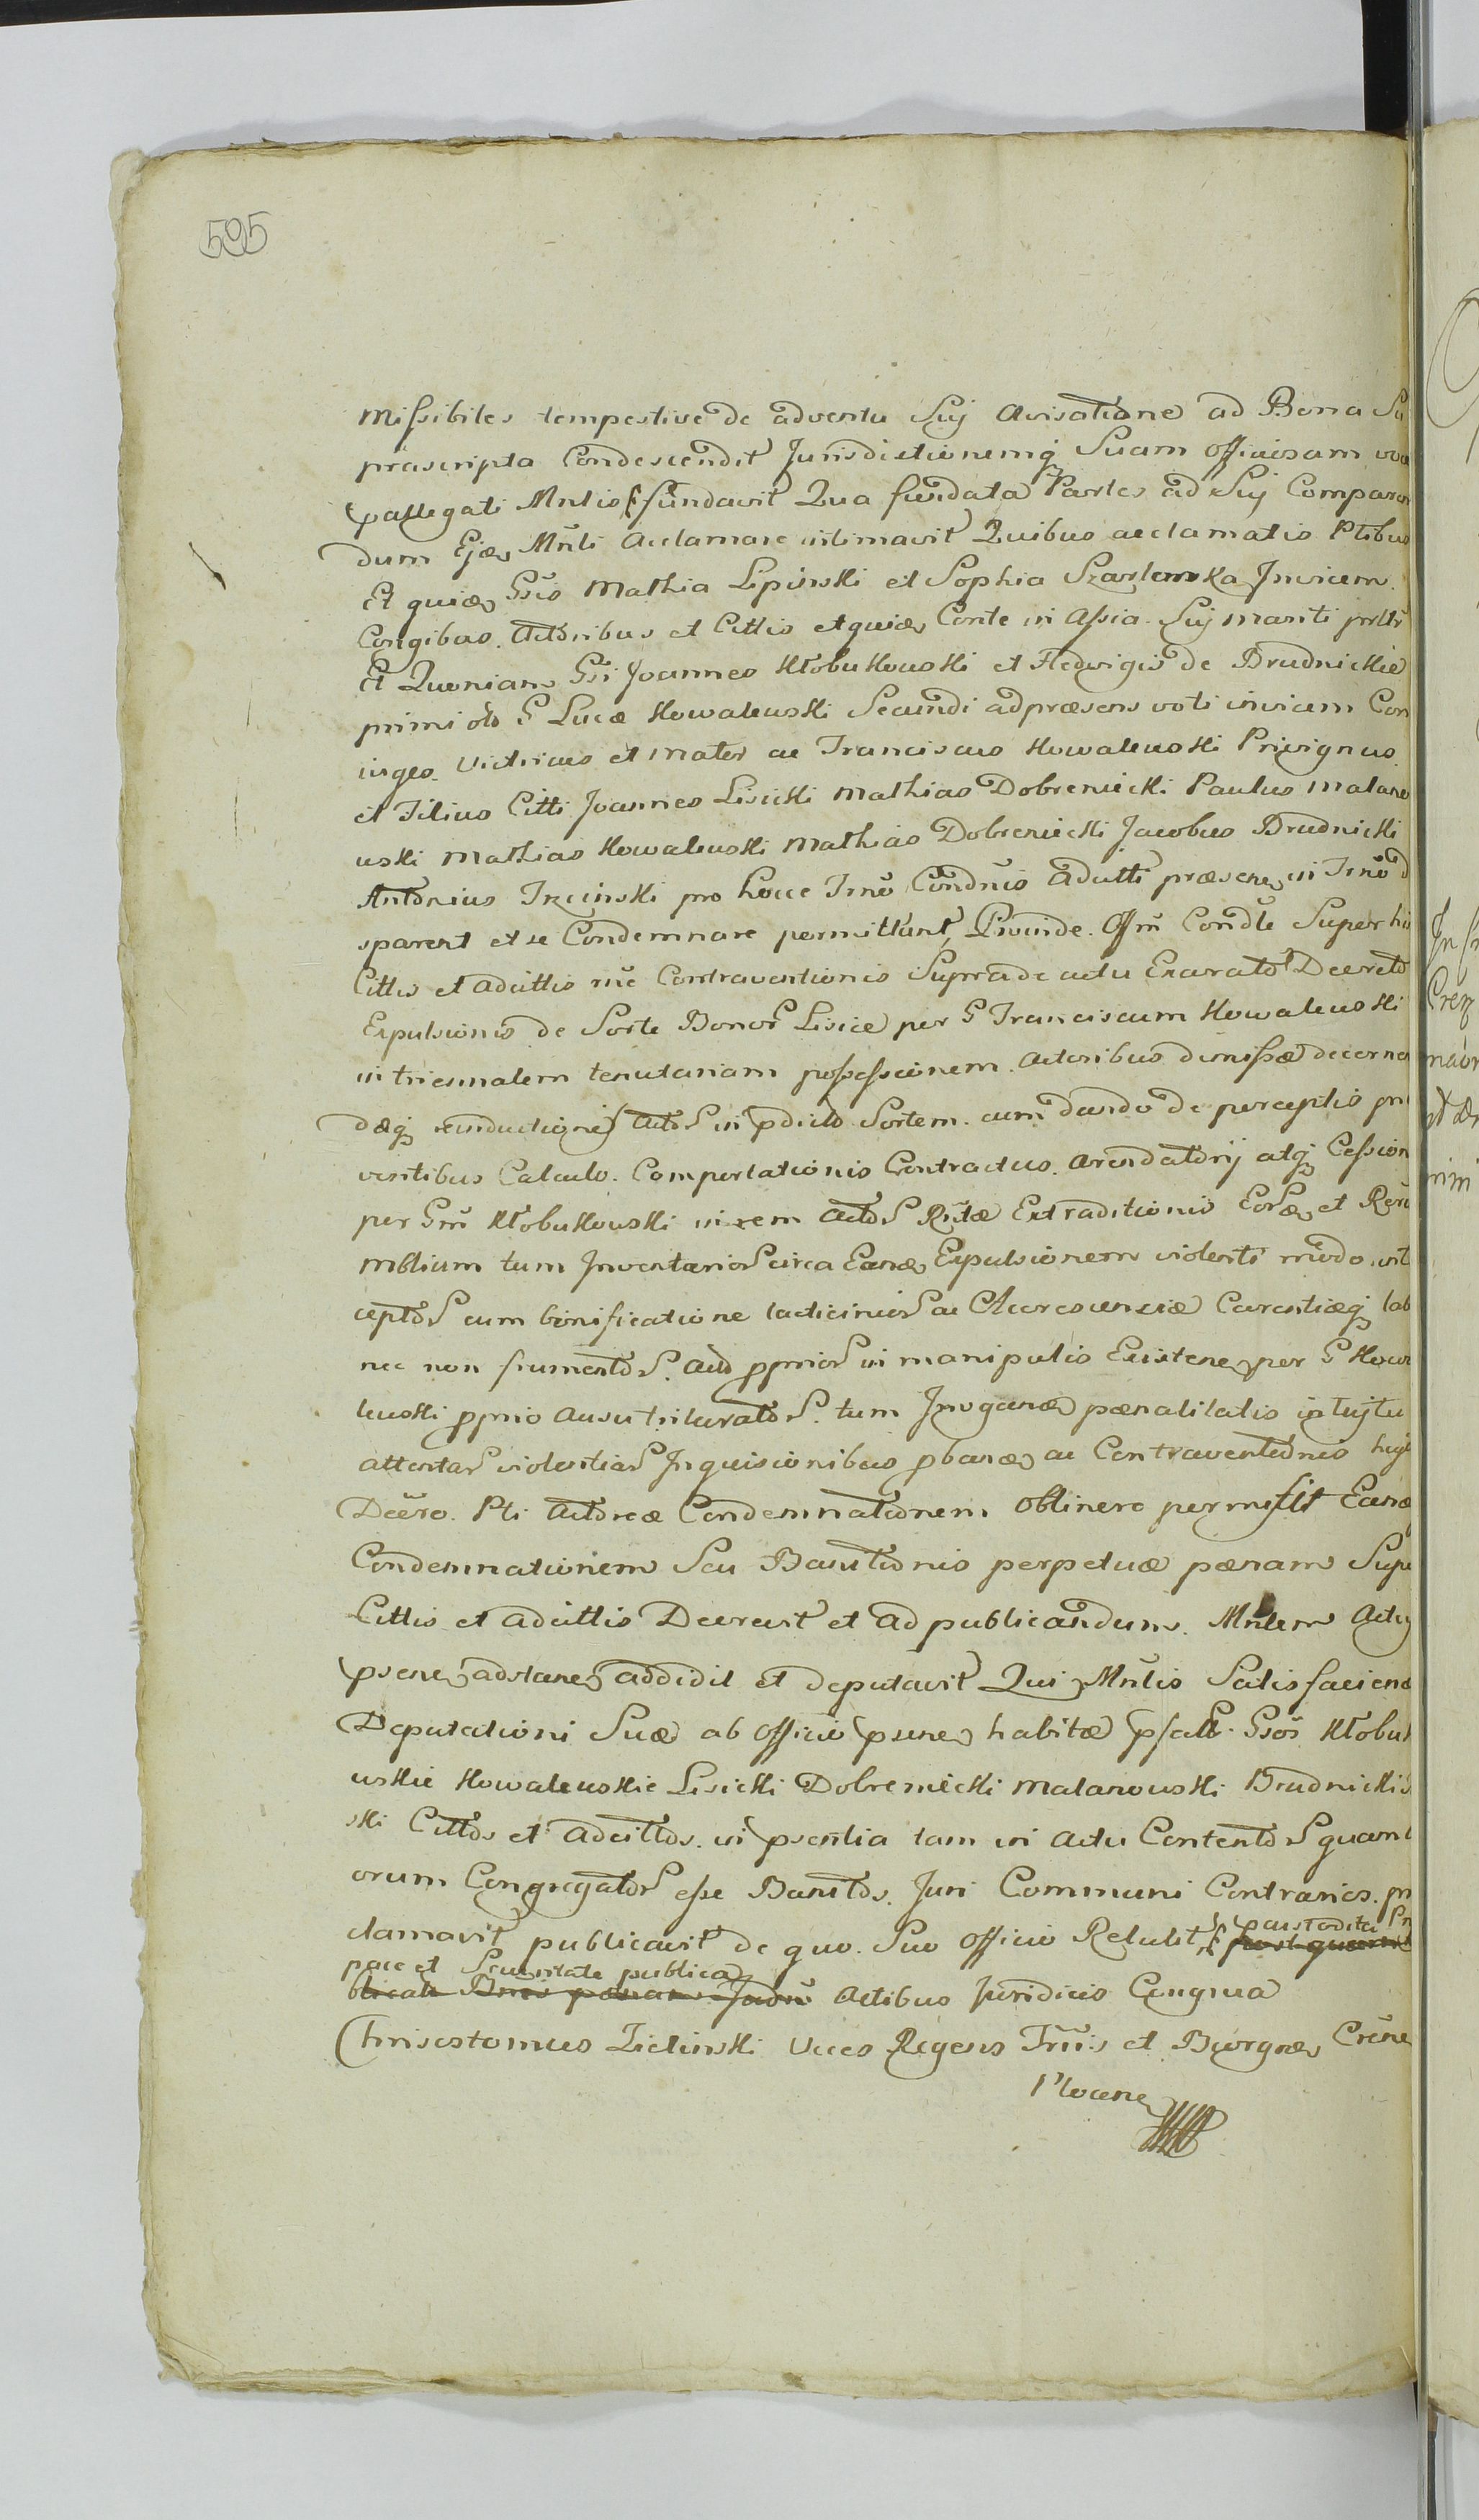 595
missibiles tempestive de adventu Suj Avisatione ad Bona Su
prascripta Condescendit Jurisdictionemq Suam Officiosam
Mnlis fundavit Qua fundata Partes ad Suj Comparen
dum Ejæ Mnli Acclamare intimavit Quibus acclamatis Ptibus
Et quiæ Gsis Mathia Lipinski et Sophia Szarlenska Invicem
Congibus Actoribus et Cittis et quiæ Conte in Assia Suj mariti
Et Quoniam Gsi Joannes Kłobukowski et Hedvigis de Brudnickie
primi olo G Lucæ Kowalewski Secundi ad præsens voti invicem Con
iuges Victricus et Mater ac Franciscus Kowalewski Privignus
et Filius Citti Joannes Lisicki Mathias Dobreniecki Paulus Malano
wski Mathias Kowalewski Mathias Dobreniecki Jacobus Brudnicki
Antonius Trzcinski pro hocce Trnô Condnis Adcitti præsene in Trnô
sparent et se Condemnare permittunt Proinde Offm Condle Super hi
Cittis et adcittis rne Contraventionis Supra de actu Exarato Decreto
Expulsionis de Sorte Bonor Lisice per G Franciscum Kowalewski
in triennalem tenutariam possessionem Actoribus dimissæ decernen
dæq reinductione Actor in pdicta Sortem cum dando de perceptis pro
ventibus Calculo Comportationis Contractus Arendatorij atq Cession
per Gm Kłobukowski in rem Actor Rntæ Extraditionis Eor et Reru
mblium tum Inventarior circa Eanæ Expulsionem violento modo int
ceptor cum bonificatione lacticinior ac Carentiæq lab
nec non frumentor Act pprior in manipulis Existene per G Kowa
lewski pprio ausu triturator tum Irroganæ pænalitatis intujtu
attentar violentiar Inquisionibus pbanæ ac Contraventionis huj
Decro Pti Actoreæ Condemnationem Obtinere permisit Eanæ
Condemnationem Seu Banitionis perpetuæ pænam Supe
Cittis et adcittis Decrevit et ad publicandum Mnlem Actuj
psene adstane addidit et deputavit Qui Mnlis Satisfaciene
Deputationi Suæ ab Officio psene habitæ Gsos Kłobuk
wskie Kowalewskie Lisicki Dobreniecki Malanowski Brudnickis
ski Cittos et Adcittos in psentia tam in actu Contentor quam
orum Congregator esse Banitos Juri Communi Contrarios pro
clamavit publicavit de quo Suo Officio Retulit post quam
pace et Securitate publica
Actibus Juridicis Congrua
Chrisostomus Zielinski Vices Regens Trris et Burgræ Crêne
Plocene